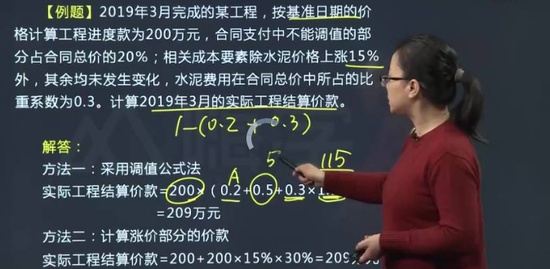 【例题】2019年3月完成的某工程，按基准日期的价
格计算工程进度款为200万元，合同支付中不能调值的部
分占合同总价的20%；相关成本要素除水泥价格上涨15%
外，其余均未发生变化，水泥费用在合同总价中所占的比
重系数为0.3。计算2019年3月的实际工程结算价款。
1-(0.2+0.3)
解答：
方法一：采用调值公式法
5 115
A
实际工程结算价款=200×（0.2+0.5+0.3×1.
=209万元
方法二：计算涨价部分的价款
实际工程结算价款=200+200×15%×30%=209